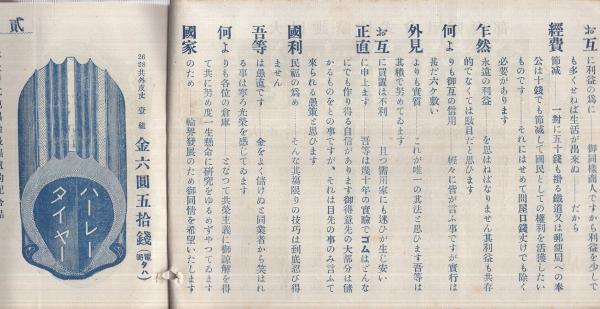 お互に利益の爲に――御同樣商人ですから利益を少しで
も多くせねば生活が出來ぬ――だから
經費節減 一對に五十錢も掛る鐵道又は郵便局への奉
公は十錢でも節減して國民としての權利を活獲したい
ものです――それにはせめて問屋口錢丈けでも除く
必要があります
乍然永遠の利益 を思はねばなりません其利益も共存
的でなくては駄目だと思ひます
何より御互の信用 輕々に皆が言ふ事ですが實行は
甚だ六ケ敷い
外見よりも實質――これが唯一の其法と思ひます吾等は
其積で努めてゐます
お互に買置は不利――且つ需用家にも迷ひが生じ安い
正直に申上ます 吾等は幾十年の實驗でゴムはどんな
にでも作り得る自信があります御得意先の大部分は儲
かるものをとの事ですが、それは目先の事のみ言ふて
來られる愚策と思ひます
國利民福の爲め――そんな其場限りの技巧は到底忍び得
ません
吾等は愚直です――金をよく儲けぬと同業者から笑はれ
る事は寧ろ光榮を感じてゐます
何よりも各位の倉庫――となつて共榮主義に御諒解を得
て共に努め度一生懸命に研究をゆるめずやつてゐます
國家のため 輪界發展のため御同情を希望いたします
26 28 共外皮丈 壹組
金六圓五拾錢
ハーレー
タイヤー